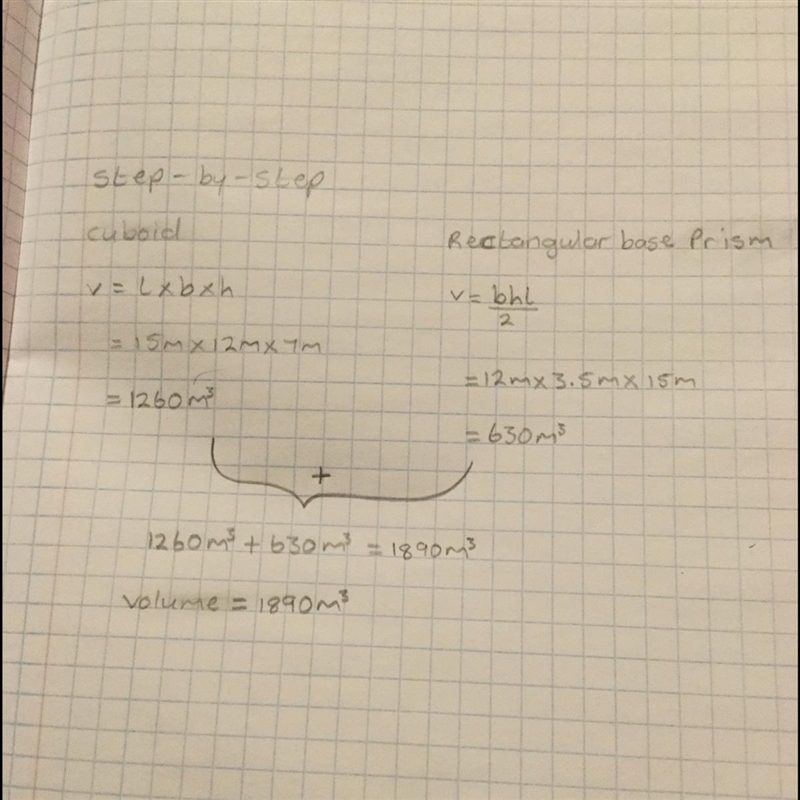 step-by-step
cuboid
v = l×b×h
= 15m×12m×7m
= 1260m³
Rectangular base Prism
v = bhl
2
= 12m×3.5m×15m
= 630m³
+
1260m³ + 630m³ = 1890m³
volume = 1890m³